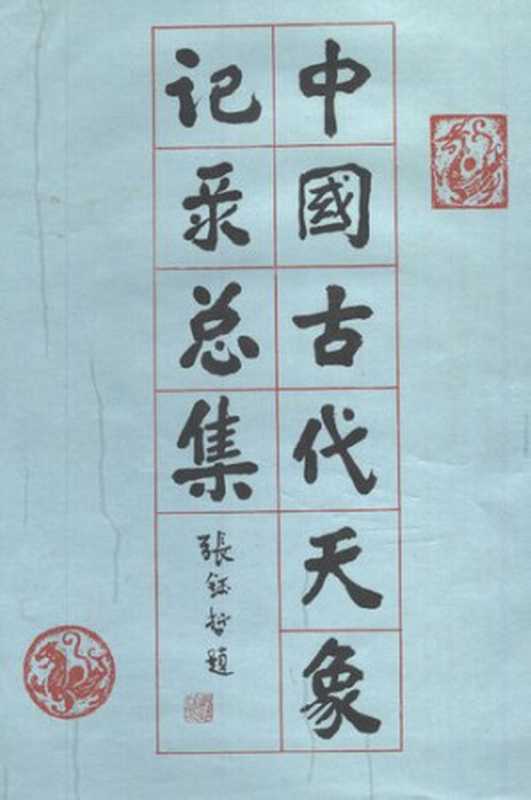 中國古代天象
记录总集
張鈺哲題